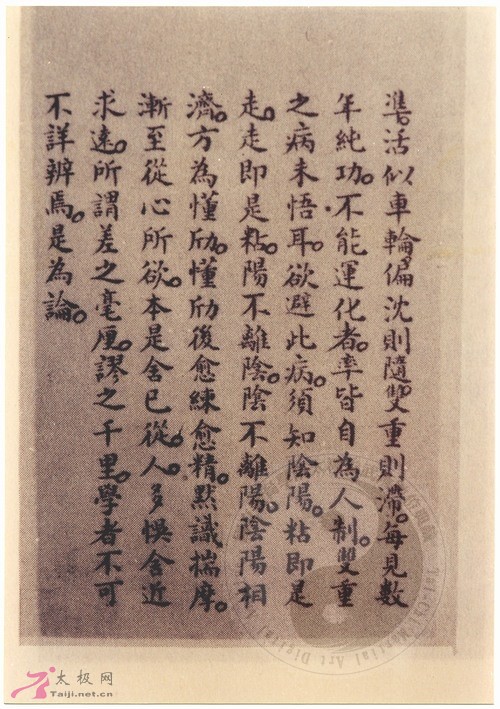 準活似車輪偏沈則隨。雙重則滯。每見數
年純功。不能運化者。率皆自為人制。雙重
之病未悟耳。欲避此病。須知陰陽。粘即是
走。走即是粘。陽不離陰。陰不離陽。陰陽相
濟。方為懂劤。懂劤後愈練愈精。默識揣摩。
漸至從心所欲。本是舍已從人。多悮舍近
求遠。所謂差之毫厘。謬之千里。學者不可
不詳辨焉。是為論。
太极网
Taiji.net.cn
Tai-Chi Martial Art Digital